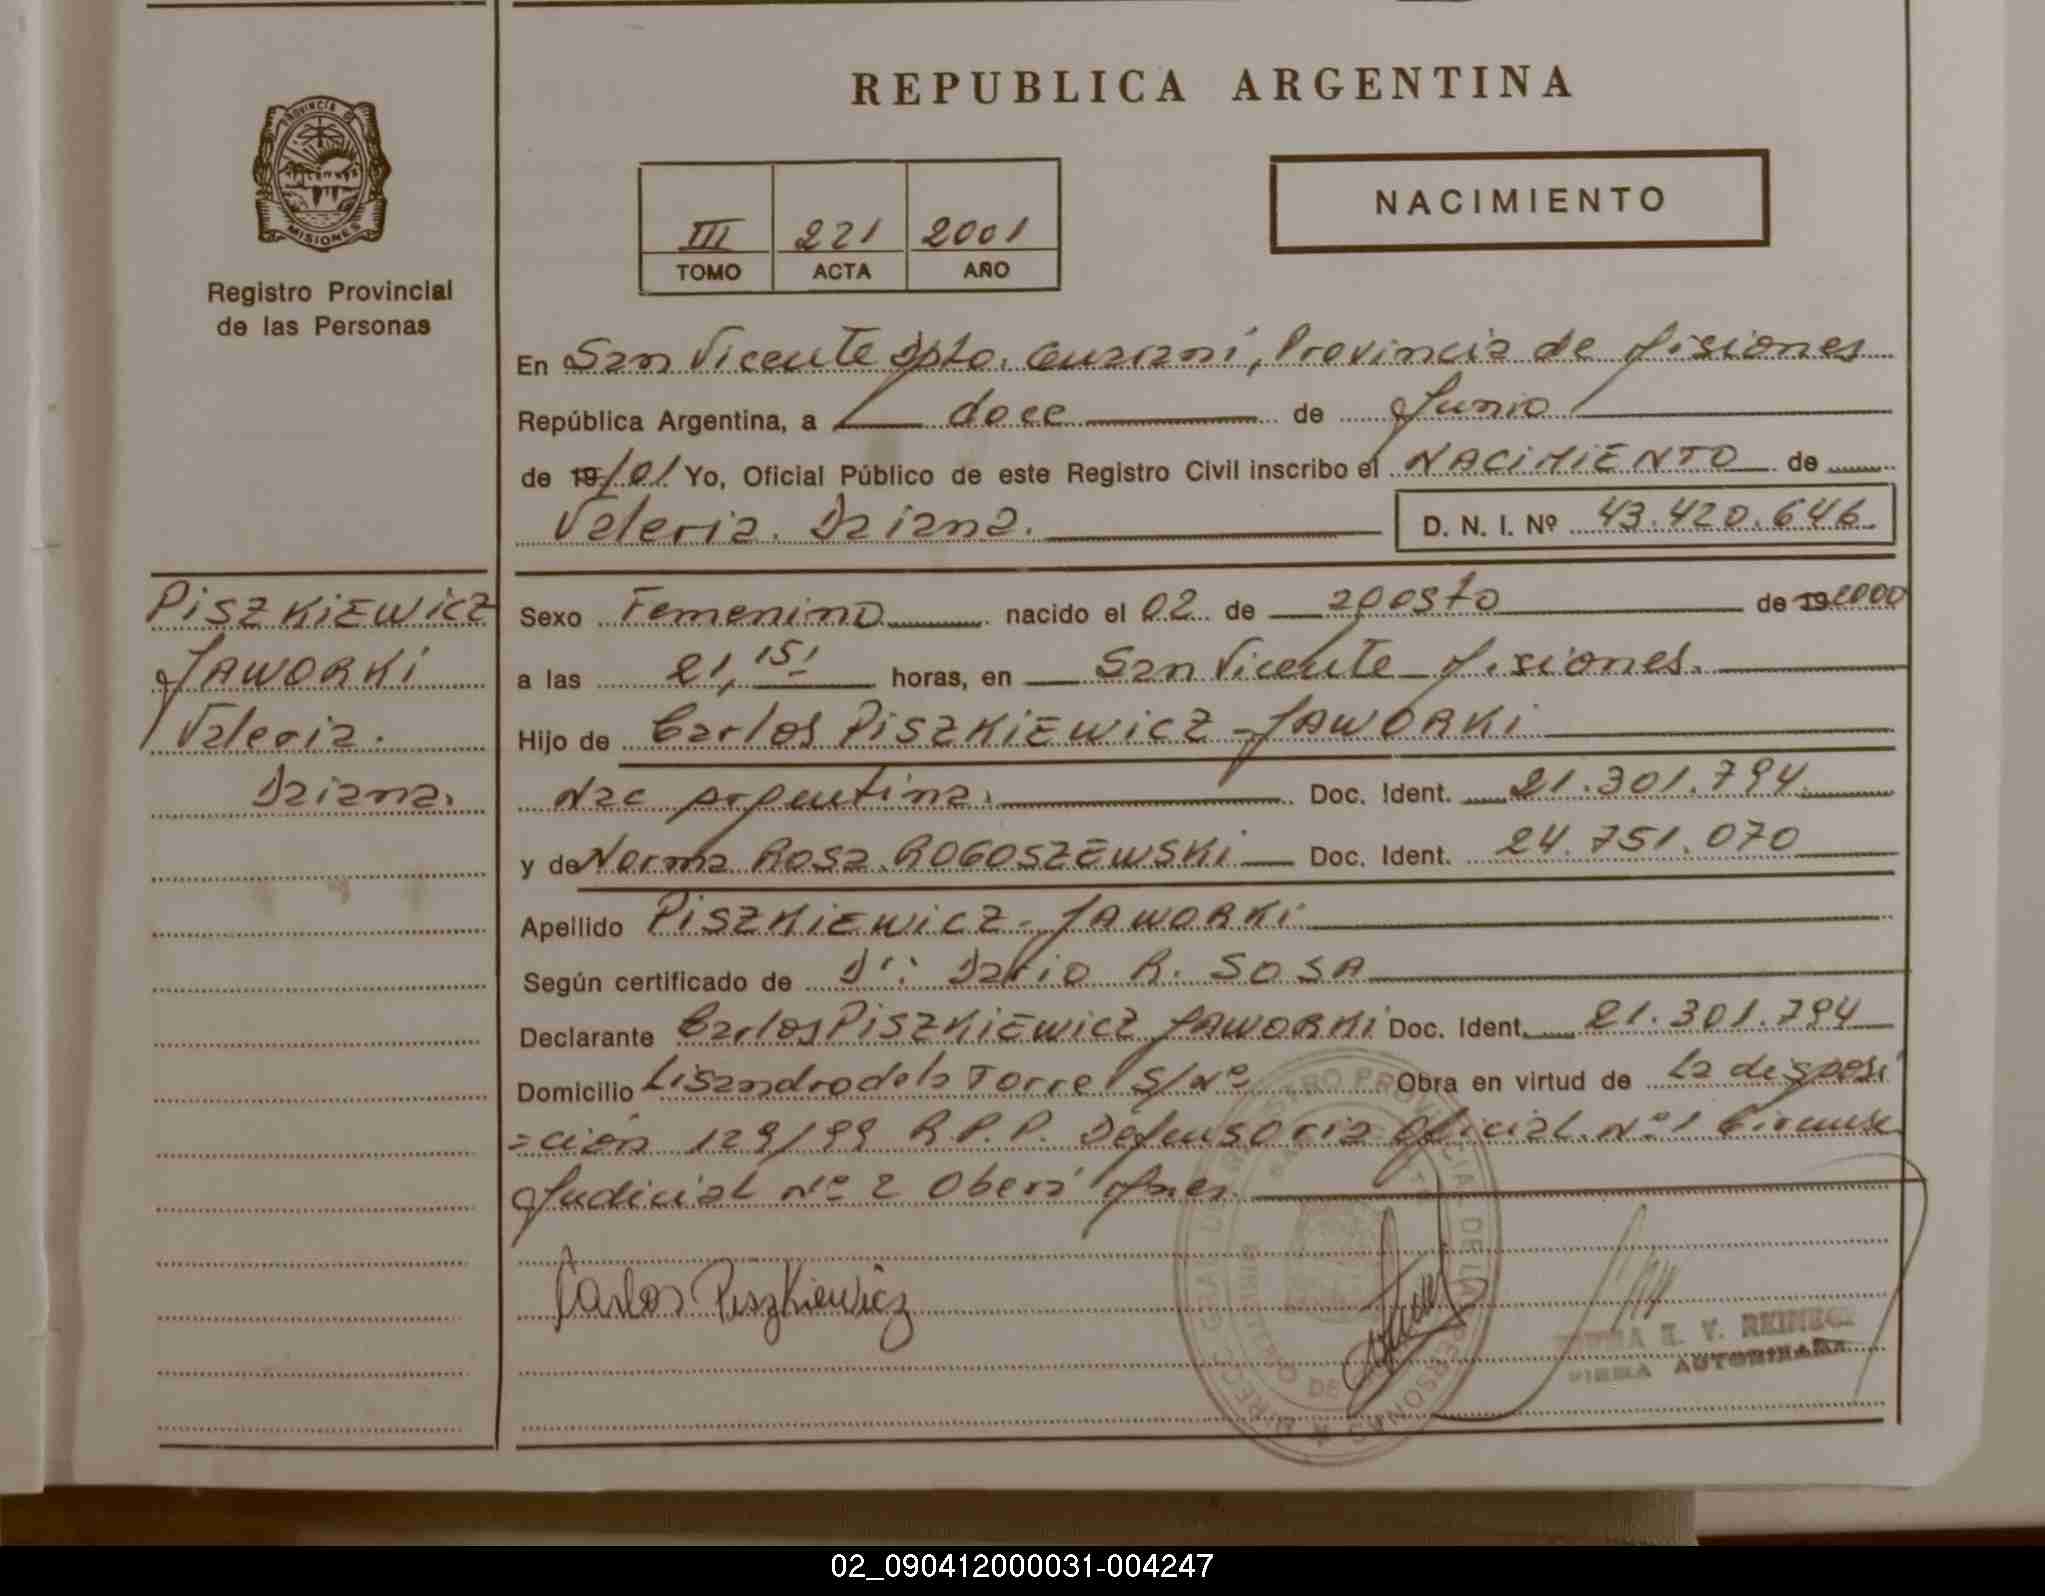 REPUBLICA ARGENTINA
PROVINCIA DE
MISIONES
Registro Provincial
de las Personas
NACIMIENTO
III 221 2001
TOMO ACTA AÑO
En San Vicente Dpto. Guaraní, Provincia de Misiones
República Argentina, a doce de Junio
de 19/01 Yo, Oficial Público de este Registro Civil inscribo el NACIMIENTO de
Valeria. Daiana. D. N. I. Nº 43.420.646
PISZKIEWICZ
JAWORKI
Valeria.
Daiana.
Sexo Femenino nacido el 02 de agosto de 19 2000
a las 21,15' horas, en San Vicente Misiones.
Hijo de Carlos PISZKIEWICZ - JAWORKI
Nac argentina. Doc. Ident. 21.301.794
y de Norma Rosa ROGOSZEWSKI Doc. Ident. 24.751.070
Apellido PISZKIEWICZ - JAWORKI
Según certificado de Dr: Dario R. SOSA
Declarante Carlos PISZKIEWICZ JAWORKI Doc. Ident. 21.301.794
Domicilio Lisandro de la Torre S/Nº Obra en virtud de la disposi
=ción 129/99 R.P.P. Defensoria Oficial Nº 1 Circunsc
Judicial Nº 2 Oberá Mnes.
Carlos Piszkiewicz
E. V. REINECK
FIRMA AUTORIZADA
02_090412000031-004247